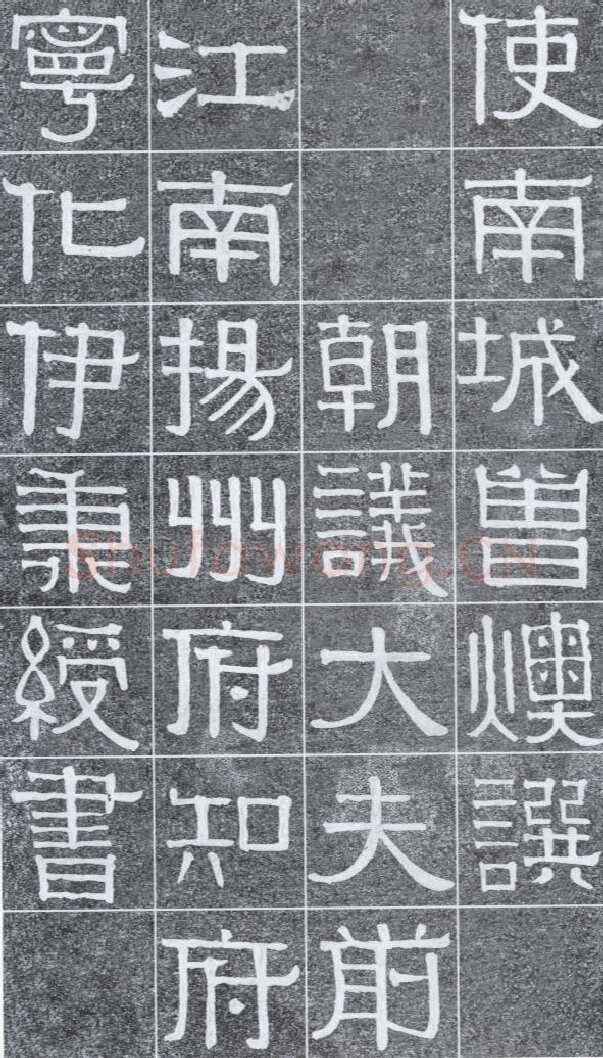 使南城曾燠譔
朝議大夫前
江南揚州府知府
寧化伊秉綬書
Shufawang.CN